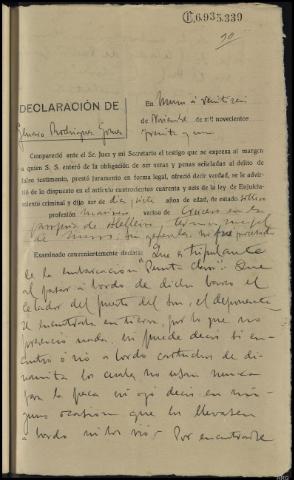 C.6.935.339
90
DECLARACIÓN DE
Genaro Rodriguez
En Muros á veintiseis
de Noviembre de mil novecientos
treinta y uno
Compareció ante el Sr. Juez y mi Secretario el testigo que se expresa al margen
a quien S. S. enteró de la obligación de ser veraz y penas señaladas al delito de
falso testimonio, prestó juramento en forma legal, ofreció decir verdad, se le advir-
tió de lo dispuesto en el artículo cuatrocientos cuarenta y seis de la ley de Enjuicia-
miento criminal y dijo ser de años de edad, de estado soltero
profesión marinero vecino de
parroquia de termino municipal
de Muros. Sin no fue procesado
Examinado convenientemente declara: Que es tripulante
de la embarcación "Punta Claro": Que
al pasar a bordo de dicho barco el
celador del puerto del Son, el deponente
se encontraba en tierra, por lo que no
presenció nada, ni puede decir si en-
contró ó no a bordo cartuchos de di-
namita los cuales no usan nunca
para la pesca ni oyó decir en nin-
guna ocasion que los llevasen
á bordo ni los vió. Por encontrarse